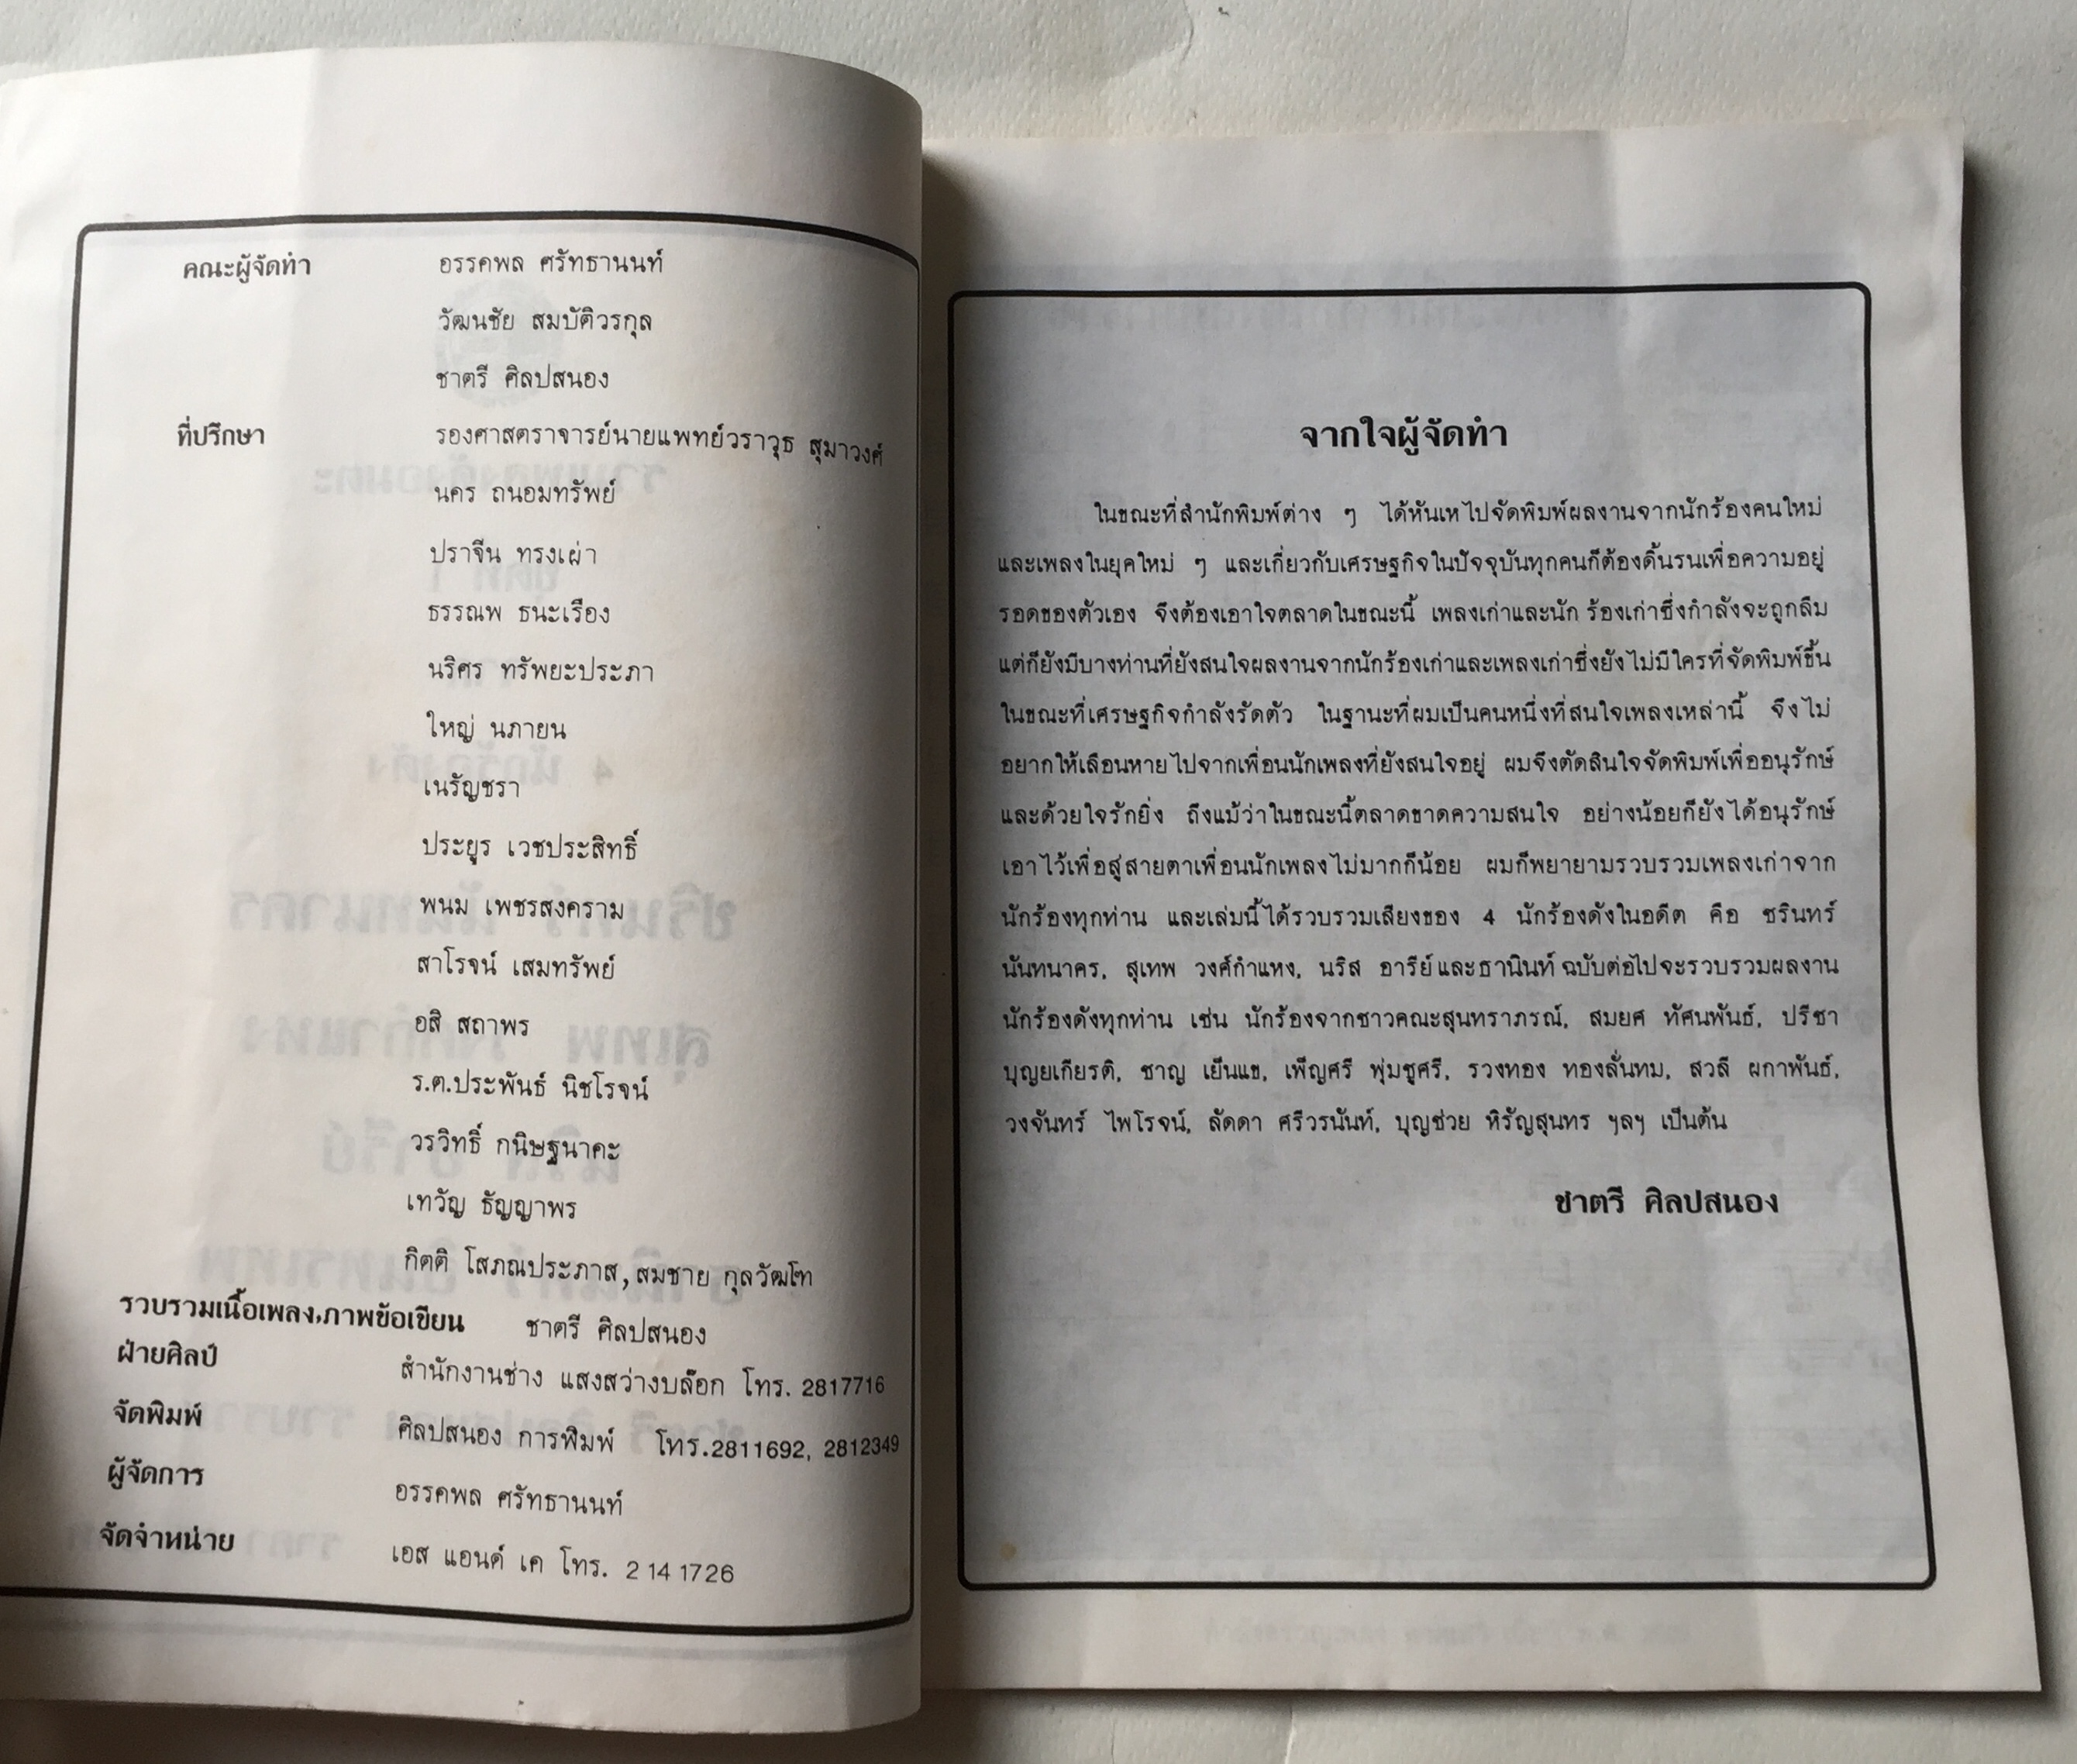 คณะผู้จัดทำ อรรคพล ศรัทธานนท์
วัฒนชัย สมบัติวรกุล
ชาตรี ศิลปสนอง
ที่ปรึกษา รองศาสตราจารย์นายแพทย์วราวุธ สุมาวงศ์
นคร ถนอมทรัพย์
ปราจีน ทรงเผ่า
ธรรณพ ธนะเรือง
นริศร ทรัพยะประภา
ใหญ่ นภายน
เนรัญชรา
ประยูร เวชประสิทธิ์
พนม เพชรสงคราม
สาโรจน์ เสมทรัพย์
อสิ สถาพร
ร.ต.ประพันธ์ นิชโรจน์
วรวิทธิ์ กนิษฐนาคะ
เทวัญ ธัญญาพร
กิตติ โสภณประภาส, สมชาย กุลวัฒโฑ
รวบรวมเนื้อเพลง,ภาพข้อเขียน ชาตรี ศิลปสนอง
ฝ่ายศิลป์ สำนักงานช่าง แสงสว่างบล๊อก โทร. 2817716
จัดพิมพ์ ศิลปสนอง การพิมพ์ โทร.2811692, 2812349
ผู้จัดการ อรรคพล ศรัทธานนท์
จัดจำหน่าย เอส แอนด์ เค โทร. 2 14 1726
จากใจผู้จัดทำ
ในขณะที่สำนักพิมพ์ต่าง ๆ ได้หันเหไปจัดพิมพ์ผลงานจากนักร้องคนใหม่
และเพลงในยุคใหม่ ๆ และเกี่ยวกับเศรษฐกิจในปัจจุบันทุกคนก็ต้องดิ้นรนเพื่อความอยู่
รอดของตัวเอง จึงต้องเอาใจตลาดในขณะนี้ เพลงเก่าและนักร้องเก่าซึ่งกำลังจะถูกลืม
แต่ก็ยังมีบางท่านที่ยังสนใจผลงานจากนักร้องเก่าและเพลงเก่าซึ่งยังไม่มีใครที่จัดพิมพ์ขึ้น
ในขณะที่เศรษฐกิจกำลังรัดตัว ในฐานะที่ผมเป็นคนหนึ่งที่สนใจเพลงเหล่านี้ จึงไม่
อยากให้เลือนหายไปจากเพื่อนนักเพลงที่ยังสนใจอยู่ ผมจึงตัดสินใจจัดพิมพ์เพื่ออนุรักษ์
และด้วยใจรักยิ่ง ถึงแม้ว่าในขณะนี้ตลาดขาดความสนใจ อย่างน้อยก็ยังได้อนุรักษ์
เอาไว้เพื่อสู่สายตาเพื่อนนักเพลงไม่มากก็น้อย ผมก็พยายามรวบรวมเพลงเก่าจาก
นักร้องทุกท่าน และเล่มนี้ได้รวบรวมเสียงของ 4 นักร้องดังในอดีต คือ ชรินทร์
นันทนาคร, สุเทพ วงศ์กำแหง, นริส อารีย์และธานินท์ ฉบับต่อไปจะรวบรวมผลงาน
นักร้องดังทุกท่าน เช่น นักร้องจากชาวคณะสุนทราภรณ์, สมยศ ทัศนพันธ์, ปรีชา
บุญยเกียรติ, ชาญ เย็นแข, เพ็ญศรี พุ่มชูศรี, รวงทอง ทองลั่นทม, สวลี ผกาพันธ์,
วงจันทร์ ไพโรจน์, ลัดดา ศรีวรนันท์, บุญช่วย หิรัญสุนทร ฯลฯ เป็นต้น
ชาตรี ศิลปสนอง